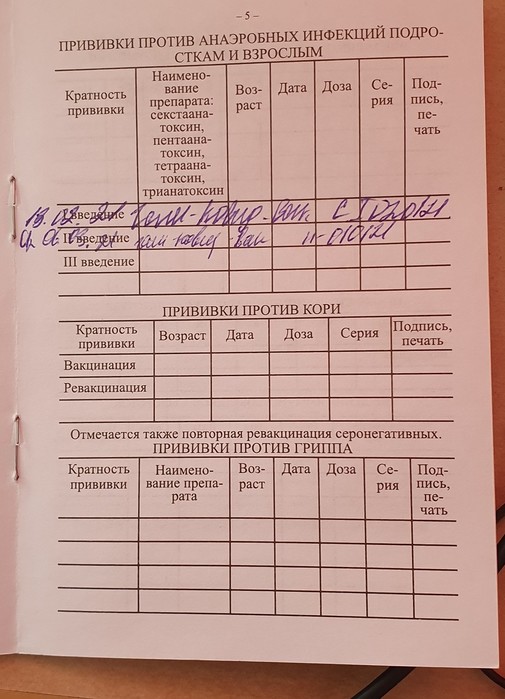 – 5 –
ПРИВИВКИ ПРОТИВ АНАЭРОБНЫХ ИНФЕКЦИЙ ПОДРО-
СТКАМ И ВЗРОСЛЫМ
Кратность прививки
Наимено-
вание
препарата:
секстаана-
токсин,
пентаана-
токсин,
тетраана-
токсин,
трианатоксин
Воз-
раст
Дата
Доза
Се-
рия
Под-
пись,
пе-
чать
I введение
II введение
III введение
ПРИВИВКИ ПРОТИВ КОРИ
Кратность прививки
Возраст
Дата
Доза
Серия
Подпись, печать
Вакцинация
Ревакцинация
Отмечается также повторная ревакцинация серонегативных.
ПРИВИВКИ ПРОТИВ ГРИППА
Кратность прививки
Наимено-
вание препа-
рата
Воз-
раст
Дата
Доза
Се-
рия
Под-
пись,
пе-
чать